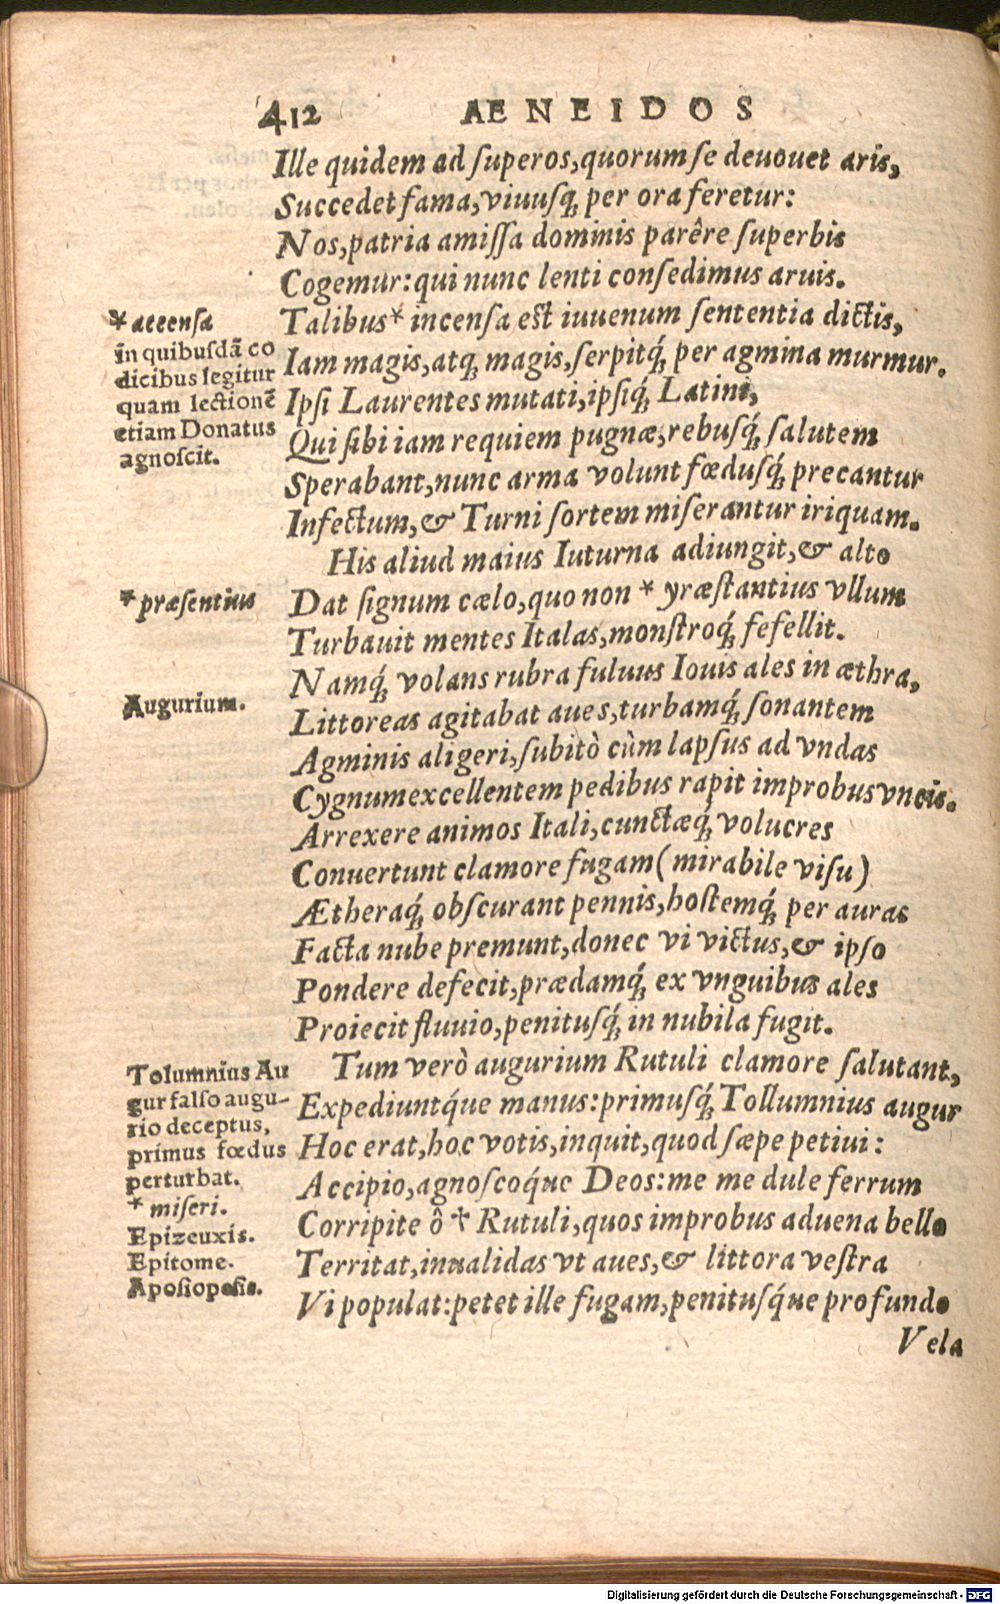 412 AENEIDOS
Ille quidem ad ſuperos,quorum ſe deuouet aris,
Succedet fama,viuuſq́; per ora feretur:
Nos,patria amiſſa dominis parêre ſuperbis
Cogemur:qui nunc lenti conſedimus aruis.
Talibus* incenſa eſt iuuenum ſententia dictis,
Iam magis,atq; magis,ſerpitq́; per agmina murmur.
Ipſi Laurentes mutati,ipſiq́; Latini,
Qui ſibi iam requiem pugnæ,rebuſq́; ſalutem
Sperabant,nunc arma volunt fœduſq́; precantur
Infectum,& Turni ſortem miſerantur iniquam.
His aliud maius Iuturna adiungit,& alto
Dat ſignum cælo,quo non * præſtantius vllum
Turbauit mentes Italas,monſtroq́; fefellit.
Namq́; volans rubra fuluus Iouis ales in æthra,
Littoreas agitabat aues,turbamq́; ſonantem
Agminis aligeri,ſubitò cùm lapſus ad vndas
Cygnum excellentem pedibus rapit improbus vncis.
Arrexere animos Itali,cunctæq́; volucres
Conuertunt clamore fugam (mirabile viſu)
Ætheraq́; obſcurant pennis,hoſtemq́; per auras
Facta nube premunt,donec vi victus,& ipſo
Pondere defecit,prædamq́; ex vnguibus ales
Proiecit fluuio,penituſq́; in nubila fugit.
Tum verò augurium Rutuli clamore ſalutant,
Expediuntq́ue manus:primuſq́; Tollumnius augur
Hoc erat,hoc votis,inquit,quod ſæpe petiui:
Accipio,agnoſcoq́ue Deos:me me dule ferrum
Corripite ô † Rutuli,quos improbus aduena bello
Territat,inualidas vt aues,& littora veſtra
Vi populat:petet ille fugam,penituſq́ue profundo
Vela
* accenſa
in quibuſdã co
dicibus legitur
quam lectionẽ
etiam Donatus
agnoſcit.
* præſentius
Augurium.
Tolumnius Au
gur falſo augu-
rio deceptus,
primus fœdus
perturbat.
* miſeri.
Epizeuxis.
Epitome.
Apoſiopeſis.
Digitalisierung gefördert durch die Deutsche Forschungsgemeinschaft - DFG